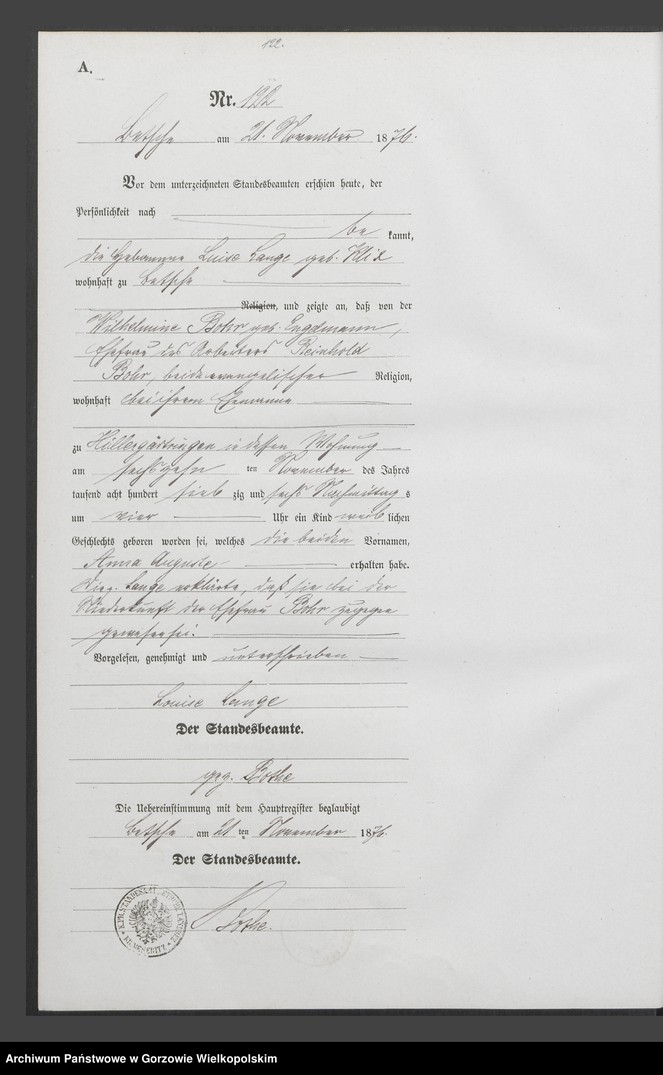 122.
A.
Nr. 122
Betsche am 21. November 1876.
Vor dem unterzeichneten Standesbeamten erschien heute, der
Persönlichkeit nach
be kannt,
die Hebamme Luise Lange geb. Klix
wohnhaft zu Betsche
Religion, und zeigte an, daß von der
Wilhelmine Bohr geb. Engelmann,
Ehefrau des Arbeiters Reinhold
Bohr, beide evangelischer Religion,
wohnhaft bei ihrem Ehemanne
zu in dessen Wohnung
am sechszehn ten November des Jahres
tausend acht hundert sieb zig und sechs Nachmittag s
um vier Uhr ein Kind weib lichen
Geschlechts geboren worden sei, welches die beiden Vornamen,
Anna Auguste erhalten habe.
Die Lange erklärte, daß sie bei der
Niederkunft der Ehefrau Bohr zugegen
gewesen sei.
Vorgelesen, genehmigt und unterschrieben
Louise Lange
Der Standesbeamte.
gez. Bothe
Die Uebereinstimmung mit dem Hauptregister beglaubigt
Betsche am 21 ten November 1876.
Der Standesbeamte.
Bothe.
Archiwum Państwowe w Gorzowie Wielkopolskim